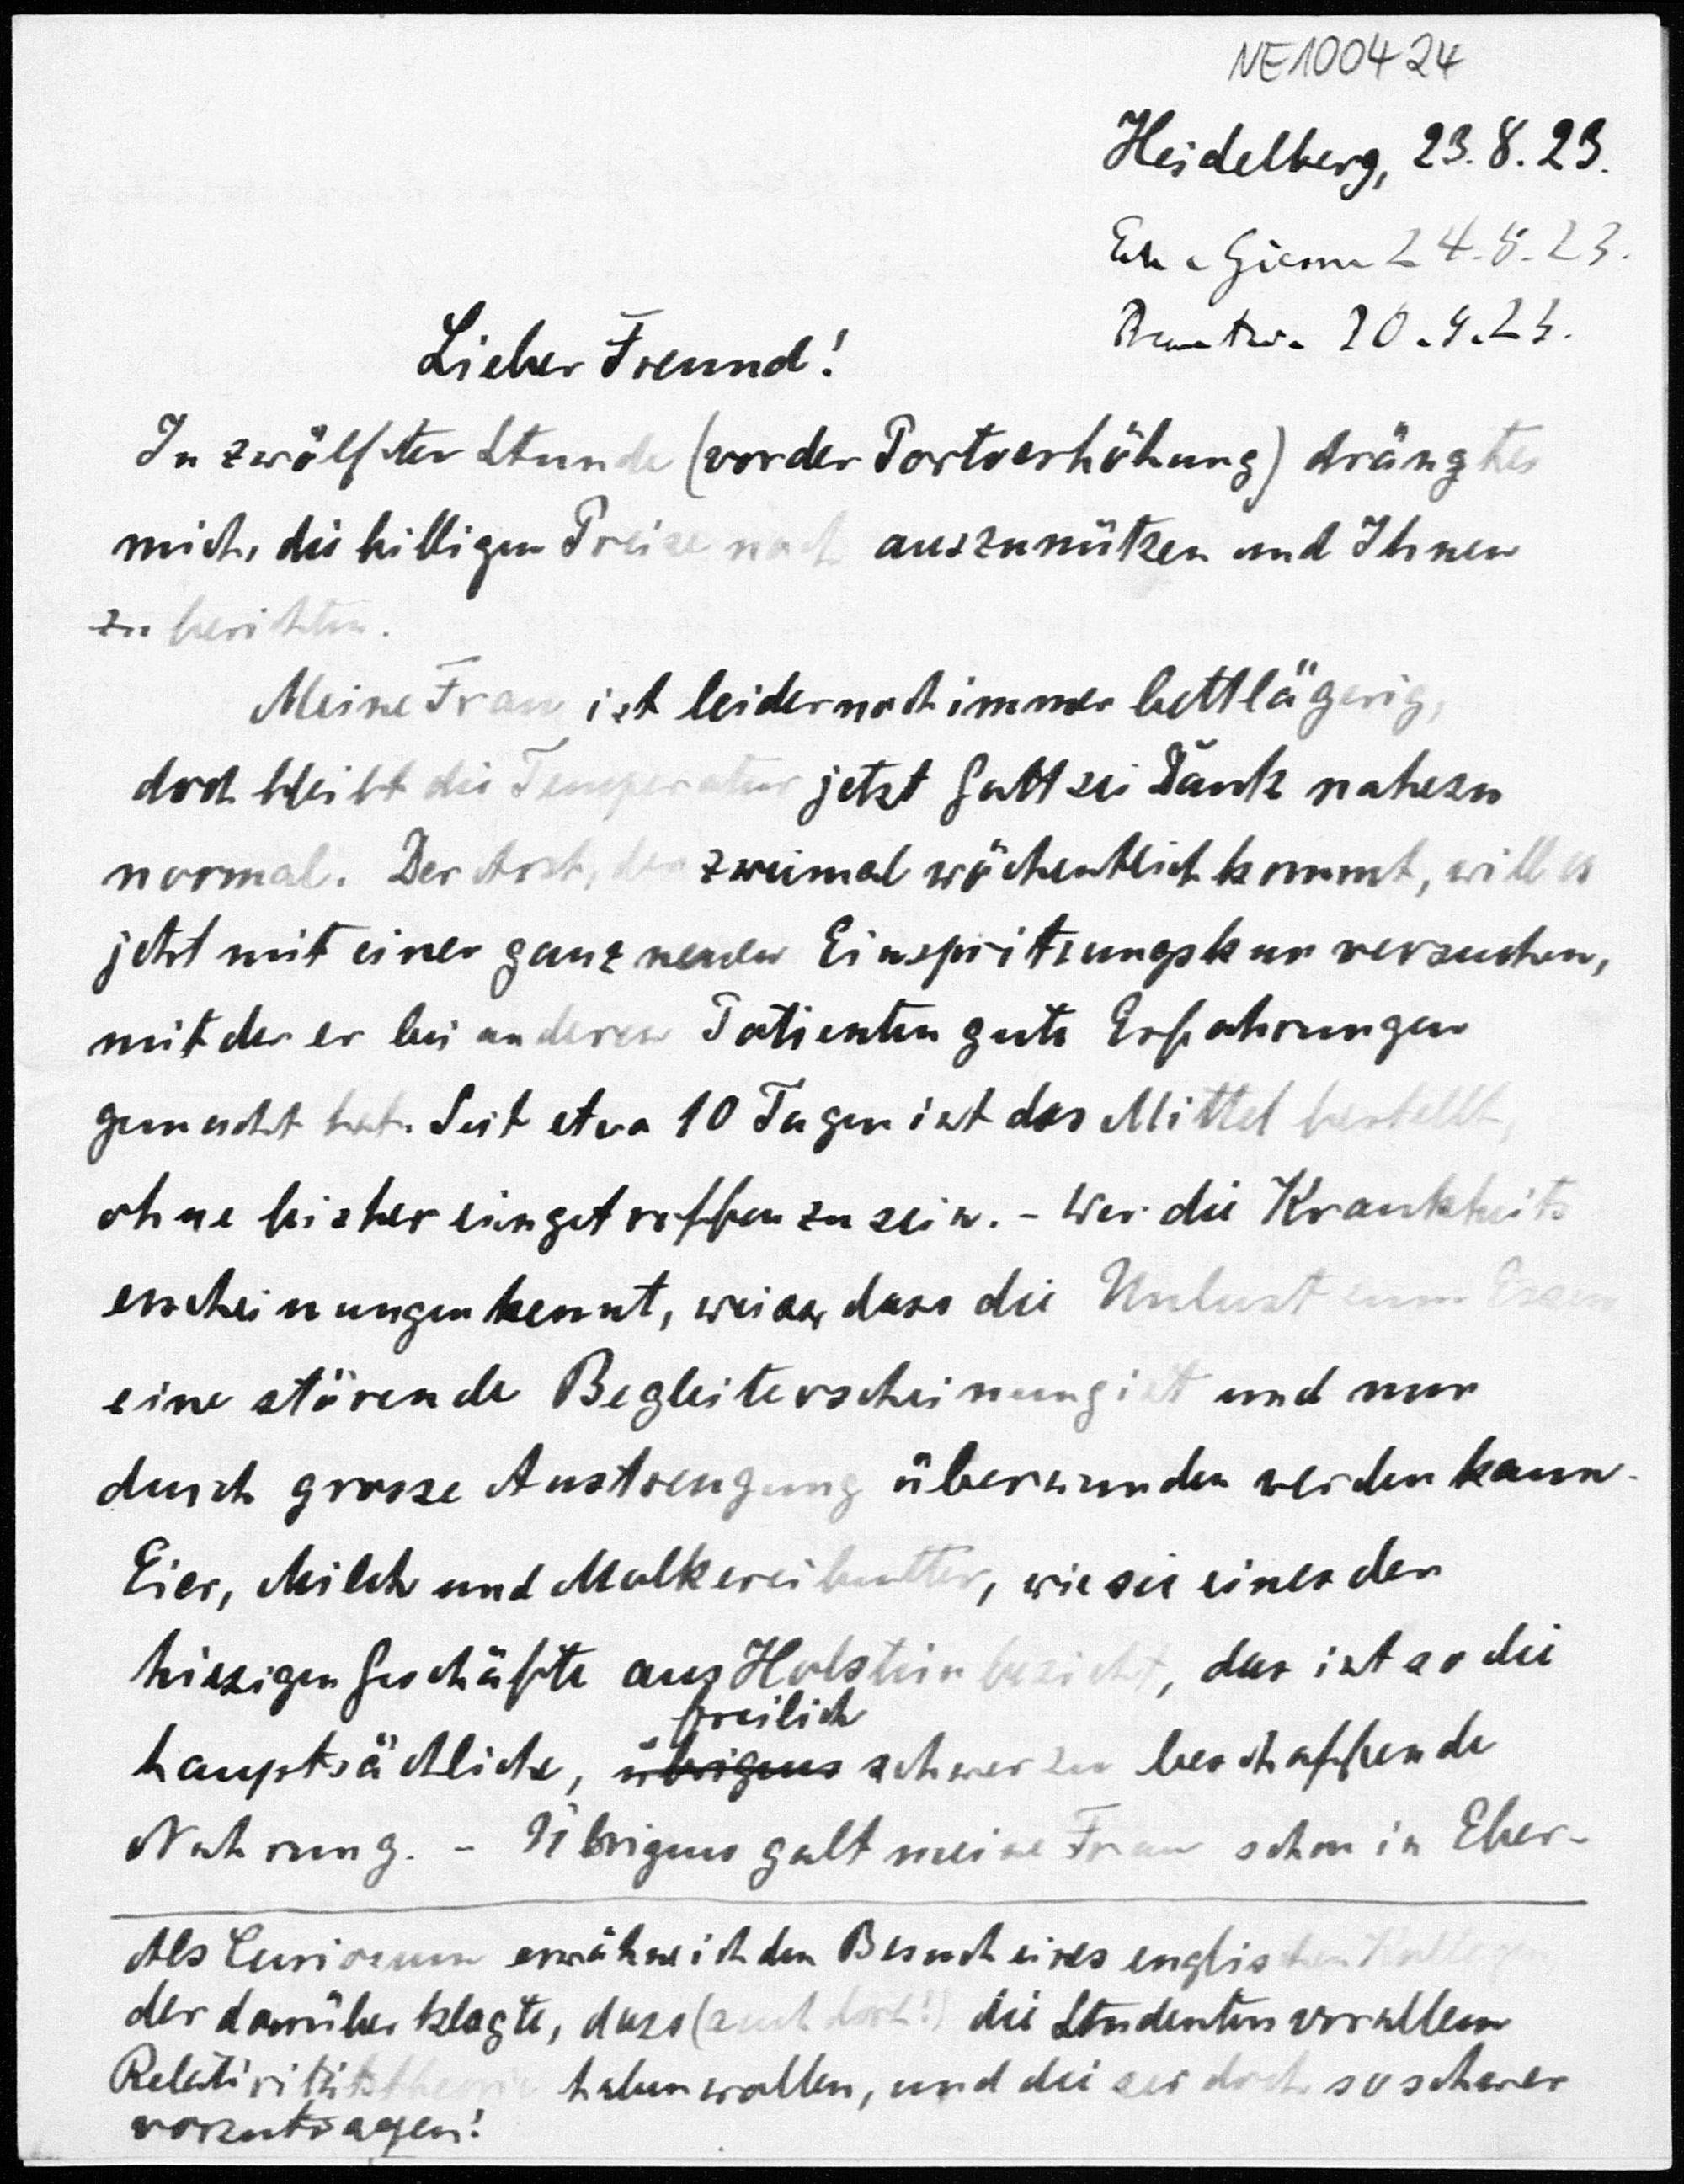 NE100424
Heidelberg, 23.8.23.
24.8.23.
Lieber Freund!
In zwölfter Stunde (vor der Portoerhöhung) drängt es
mich, die billigen Preise noch auszunützen und Ihnen
zu berichten.
Meine Frau ist leider noch immer bettlägerig,
doch bleibt die Temperatur jetzt Gott sei Dank nahezu
normal. Der Arzt, der zweimal wöchentlich kommt, will es
jetzt mit einer ganz neuen Einspritzungskur versuchen,
mit der er bei anderen Patienten gute Erfahrungen
gemacht hat. Seit etwa 10 Tagen ist das Mittel bestellt,
ohne bisher eingetroffen zu sein. - Wer die Krankheits
erscheinungen kennt, weiss, dass die Unlust zum Essen
eine störende Begleiterscheinung ist und nur
durch grosse Anstrengung überwunden werden kann.
Eier, Milch und Molkereibutter, wie sie eines der
hiesigen Geschäfte aus Holstein bezieht, das ist so die
freilich
hauptsächliche, übrigens schwer zu beschaffende
Nahrung. - Übrigens galt meine Frau schon in Eber-
Als Curiosum erwähne ich den Besuch eines englischen Kollegen,
der darüber klagte, dass (auch dort!) die Studenten vor allem
Relativitätstheorie haben wollen, und die sei doch so schwer
vorzutragen!